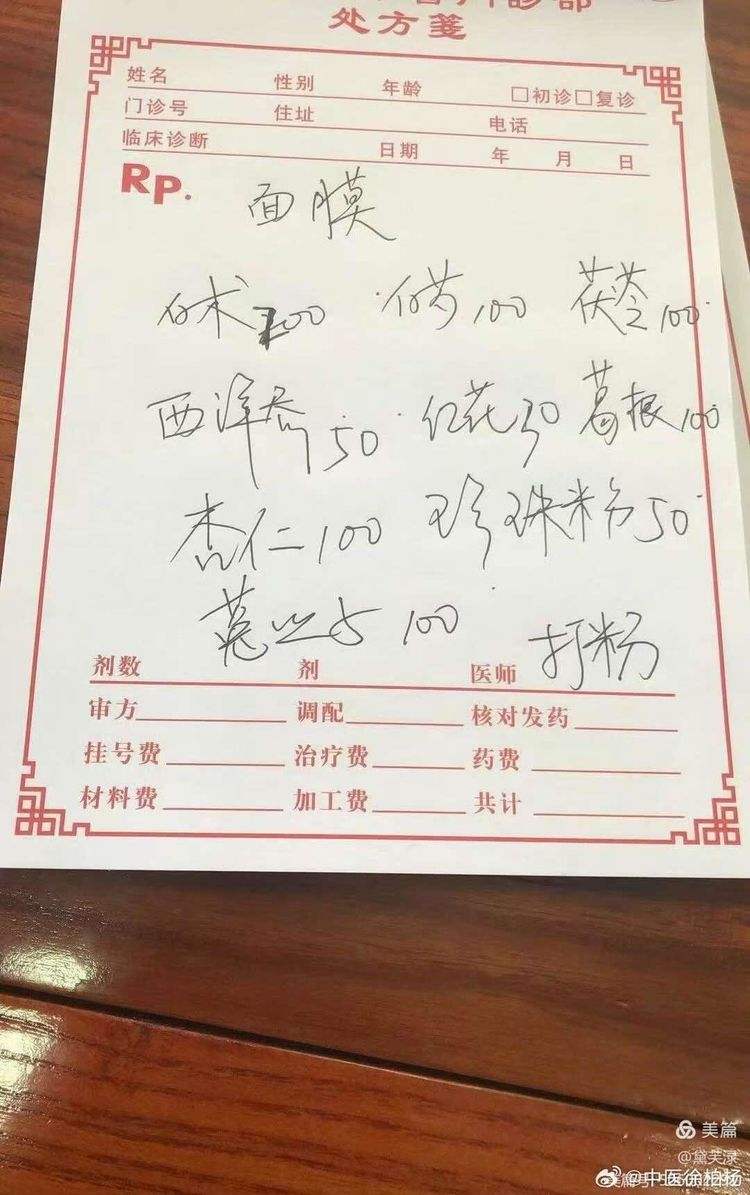 处方笺
姓名 性别 年龄 □初诊□复诊
门诊号 住址 电话
临床诊断 日期 年 月 日
Rp. 面膜
白术 100 白芍 100 茯苓 100
西洋参 50 红花 30 葛根 100
杏仁 100 珍珠粉 50
100 打粉
剂数 剂 医师
审方 调配 核对发药
挂号费 治疗费 药费
材料费 加工费 共计
美篇
@黛芙渌
美篇号
@中医徐柏扬